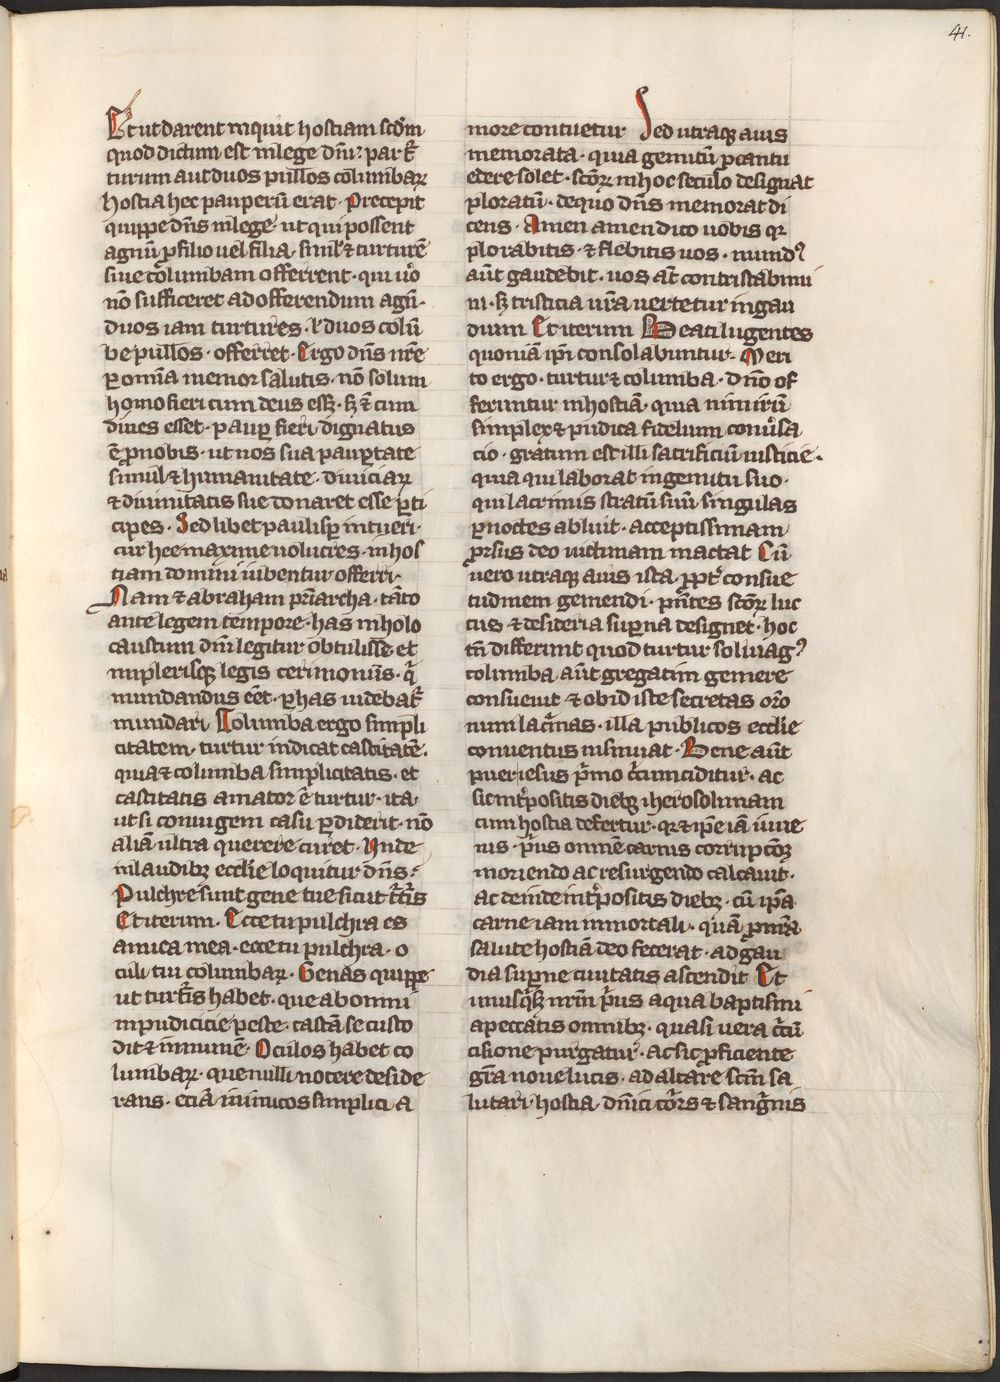 41.
Et ut darent inquit hostiam scdm̄
quod dictum est in lege dn̄i: par t᷑
turum aut duos pullos columbaꝝ
Hostia hec pauperū erat. Precepit
quippe dn̄s in lege. ut qui possent
agnū ꝓ filio uel filia. simul & turturē
siue columbam offerrent. qui uͦo
nō sufficeret ad offerendum agnū.
duos iam turtures. ł duos colū
be pullos. offerret. Ergo dn̄s nr̄e
ꝑ omīa memor salutis. nō solum
homo fieri cum deus eēt. sꝫ & cum
diues esset. paupꝑ fieri dignatus
ē ꝓ nobis. ut nos sua paupꝑtate
simul & humanitate. diuiciaꝝ
& diuinitatis sue donaret esse ꝑti
cipes. Sed libet paulisꝑ intueri.
cur hee maxime uolucres. in hos
tiam domini iubentur offerri.
Nam & abraham pr̄iarcha. tāto
ante legem tempore. has in holo
caustum dn̄i legitur obtulisse. et
in plerisqꝫ legis cerimoniis. q̄
mundandus eēt. ꝑ has uidebat᷑
mundari Columba ergo simpli
citatem. turtur indicat castitatē.
quia & columba simplicitatis. et
castitatis amator ē turtur. ita
ut si coniugem casu ꝑdiderit. nō
aliā ultra querere curet. Unde
in laudibꝫ ecclie loquitur dn̄s.
Pulchre sunt gene tue sicut t᷑t᷑is
Et iterum. Ecce tu pulchra es
amica mea. ecce tu pulchra. o
culi tui columbaꝝ. Genas quippe
ut turt᷑is habet. que ab omni
inpudicicie peste. castā se custo
dit & inmunē. Oculos habet co
lumbaꝝ. que nulli nocere deside
rans. etiā inimicos simplici a
more contuetur Sed utraqꝫ auis
memorata. quia gemitū ꝓ cantu
edere solet. scōꝝ in hoc seculo designat
ꝓloratū. de quo dn̄s memorat di
cens. Amen amen dico uobis qꝛ
plorabitis. & flebitis uos. mundꝰ
aūt gaudebit. uos aūt contristabimi
ni. sꝫ tristicia ur̄a uertetur in gau
dium Et iterum Beati lugentes
quoniā ipi consolabuntur. Meri
to ergo. turtur & columba. dn̄o of
feruntur in hostiā. quia nimirū
simplex & pudica fidelium conuͥsa
cio. gratum est illi sacrificiū iusticie.
quia qui laborat in gemitu suo.
qui lacrimis stratū suū singulas
ꝑ noctes abluit. acceptissimam
ꝓrsus deo uictimam mactat Cū
uero utraqꝫ auis ista. ꝓpt᷑ consue
tudinem gemendi. pn̄tes scōꝝ luc
tus & desideria suꝑna designet. hoc
tn̄ differunt quod turtur soliuagꝰ
columba aūt gregatim gemere
consueuit & ob id iste secretas oro
num lacͥmas. illa publicos ecclie
conuentus insinuat. Bene aūt
puer iesus pͥmo cͥcumciditur. ac
sic int᷑positis diebꝫ iherosolimam
cum hostia defertur. qꝛ & ipe iā iuue
nis. pͥus omnē carnis corrupcōꝫ
moriendo ac resurgendo calcauit.
ac deinde int᷑positis diebꝫ. cū ipa
carne iam inmortali. quā ꝓ nr̄a
salute hostiā deo fecerat. ad gau
dia suꝑne ciuitatis ascendit Et
unusqͥsqꝫ nr̄m pͥus aqua baptismi
a peccatis omnibꝫ. quasi uera cͥcū
cisione purgatur. ac sic ꝓficiente
gr̄a noue lucis. ad altare scm̄ sa
lutari hostia dn̄ici corꝑis & sangͥnis